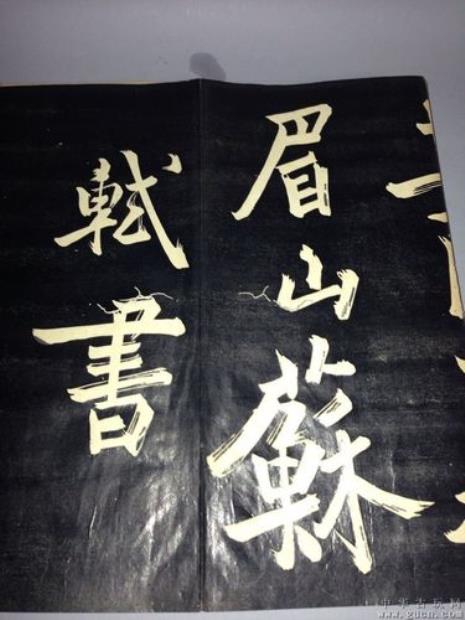 眉山蘇
軾書
中华古玩网
www.gucn.com